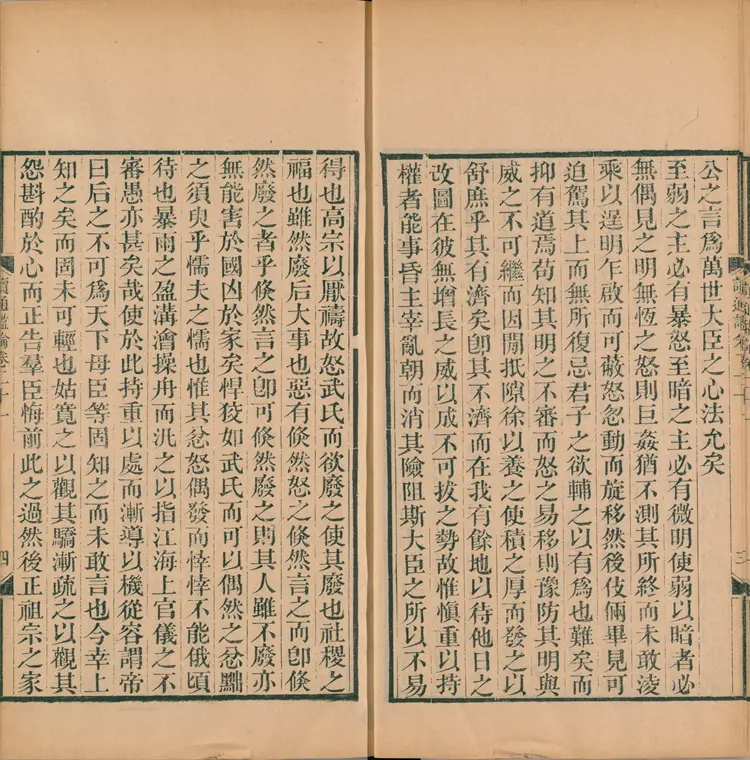 公之言爲萬世大臣之心法允矣
至弱之主必有暴怒至暗之主必有微明使弱以暗者必
無偶見之明無恆之怒則巨姦猶不測其所終而未敢淩
乘以逞明乍啟而可蔽怒忽動而旋移然後伎倆畢見可
迫駕其上而無所復忌君子之欲輔之以有爲也難矣而
抑有道焉苟知其明之不審而怒之易移則豫防其明與
威之不可繼而因閒抵隙徐以養之使積之厚而發之以
舒庶乎其有濟矣卽其不濟而在我有餘地以待他日之
改圖在彼無增長之威以成不可拔之勢故惟愼重以持
權者能事昏主宰亂朝而消其險阻斯大臣之所以不易
得也高宗以厭禱故怒武氏而欲廢之使其廢也社稷之
福也雖然廢后大事也惡有倏然怒之倏然言之而卽倏
然廢之者乎倏然言之卽可倏然廢之則其人雖不廢亦
無能害於國凶於家矣悍狡如武氏而可以偶然之忿黜
之須臾乎懦夫之懦也惟其忿怒偶發而悻悻不能俄頃
待也暴雨之盈溝澮操舟而汎之以指江海上官儀之不
審愚亦甚矣哉使於此持重以處而漸導以機從容謂帝
曰后之不可爲天下母臣等固知之而未敢言也今幸上
知之矣而固未可輕也姑寬之以觀其驕漸疏之以觀其
怨斟酌於心而正告羣臣悔前此之過然後正祖宗之家
讀通鑑論卷二十一
四
三